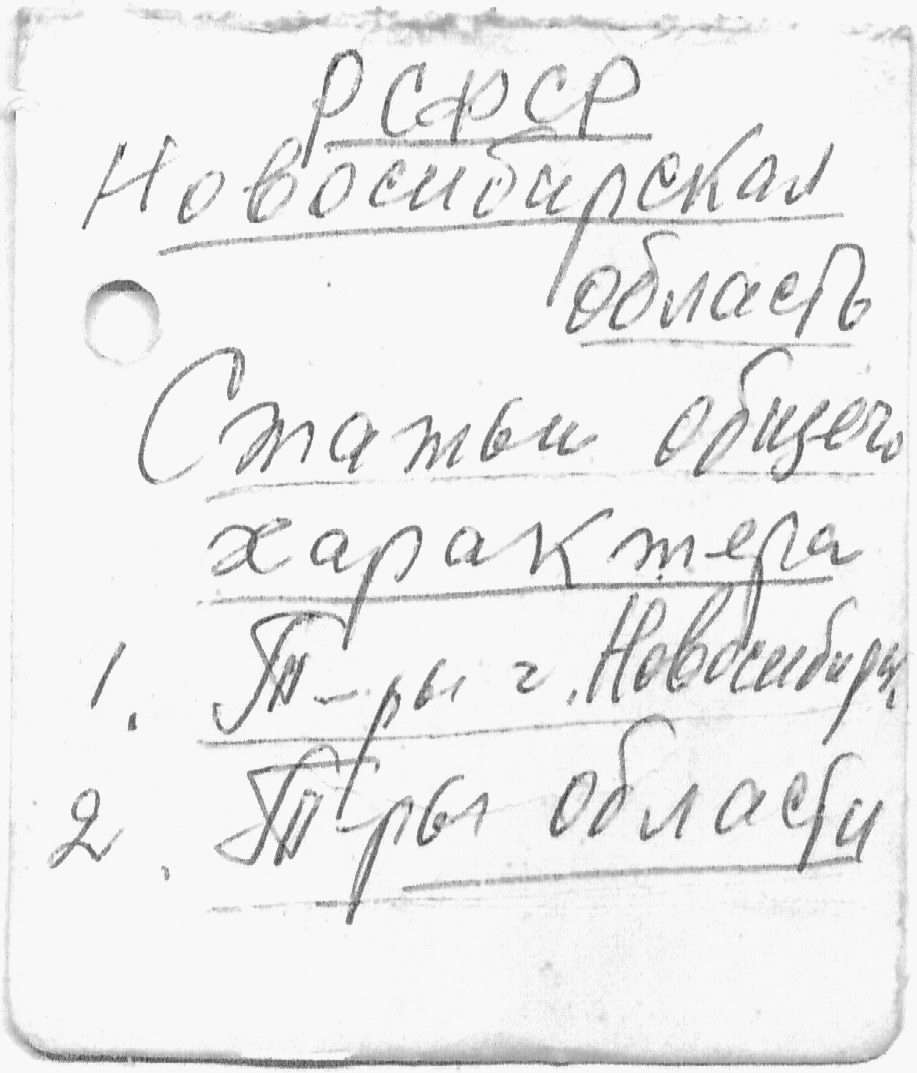 РСФСР
Новосибирская
область
Статьи общего
характера
1. Т-ры г. Новосибирска
2. Т-ры области